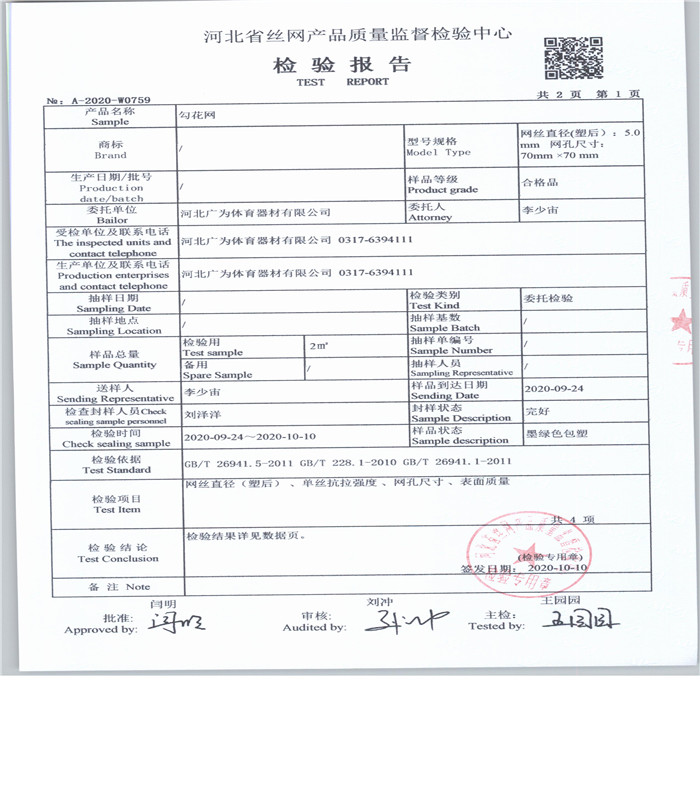 河北省丝网产品质量监督检验中心
检验报告
TEST REPORT
№: A-2020-W0759
共 2 页 第 1 页
产品名称
Sample
勾花网
商标
Brand
/
型号规格
Model Type
网丝直径(塑后): 5.0
mm 网孔尺寸:
70mm×70 mm
生产日期/批号
Production
date/batch
/
样品等级
Product grade
合格品
委托单位
Bailor
河北广为体育器材有限公司
委托人
Attorney
李少宙
受检单位及联系电话
The inspected units and
contact telephone
河北广为体育器材有限公司 0317-6394111
生产单位及联系电话
Production enterprises
and contact telephone
河北广为体育器材有限公司 0317-6394111
抽样日期
Sampling Date
/
检验类别
Test Kind
委托检验
抽样地点
Sampling Location
/
抽样基数
Sample Batch
/
样品总量
Sample Quantity
检验用
Test sample
2㎡
抽样单编号
Sample Number
/
备用
Spare Sample
/
抽样人员
Sampling Representative
/
送样人
Sending Representative
李少宙
样品到达日期
Sending Date
2020-09-24
检查封样人员Check
sealing sample personnel
刘洋洋
封样状态
Sample Description
完好
检验时间
Check sealing sample
2020-09-24～2020-10-10
样品状态
Sample description
墨绿色包塑
检验依据
Test Standard
GB/T 26941.5-2011 GB/T 228.1-2010 GB/T 26941.1-2011
检验项目
Test Item
网丝直径（塑后）、单丝抗拉强度、网孔尺寸、表面质量
共 4 项
检验结论
Test Conclusion
检验结果详见数据页。
(检验专用章)
签发日期: 2020-10-10
检验专用章
备 注 Note
闫明
刘冲
王园园
批准:
Approved by:
闫明
审核:
Audited by:
刘冲
主检:
Tested by:
王园园